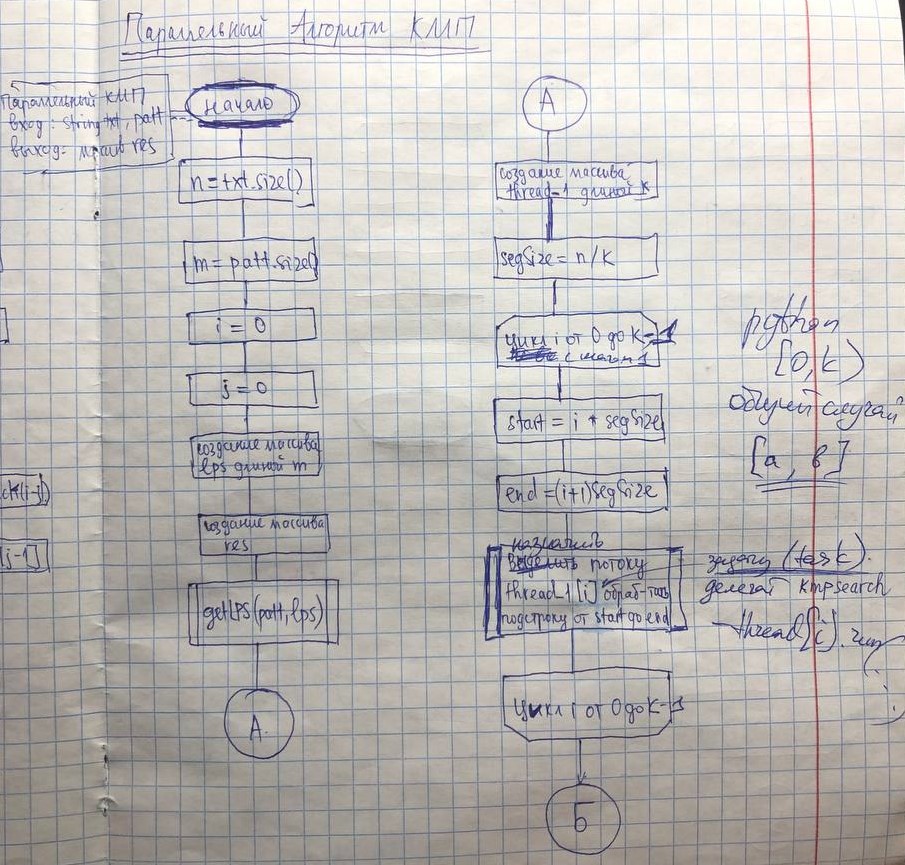 Параллельный Алгоритм КМП
Параллельный КМП
вход: string txt, patt
выход: массив res
Начало
n = txt.size()
m = patt.size()
i = 0
j = 0
создание массива
lps длиной m
создание массива
res
getLPS(patt, lps)
А
ck(i-j)
[j-1]
А
создание массива
thread-1 длиной k
segSize = n/k
Цикл i от 0 до k-1
с шагом 1
start = i * segSize
end = (i+1)segSize
назначить
выделить потоку
thread_1[i] обработать
подстроку от start до end
Цикл i от 0 до k-1
Б
python
[0, k)
общий случай
[a, b]
задачу (task).
делегат kmpsearch
thread[i].run